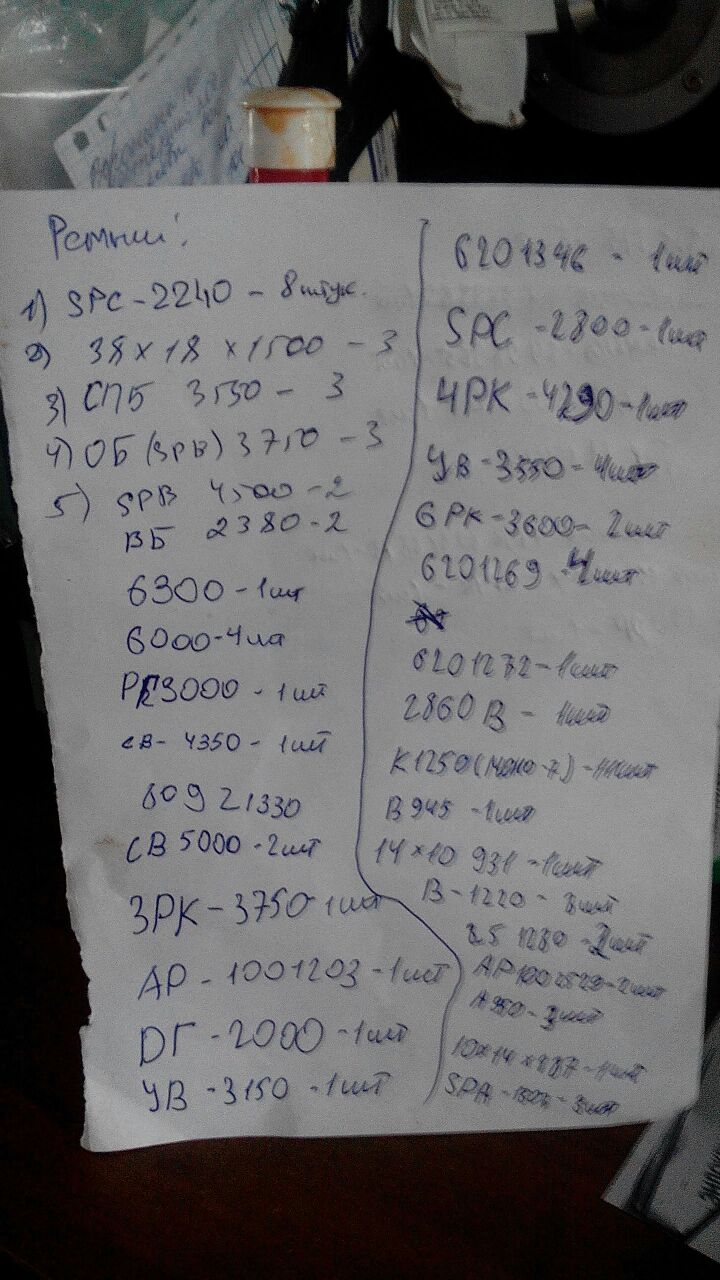 Ремни:
1) SPC - 2240 - 8 штук.
2) 38 x 18 x 1500 - 3
3) СПБ 3550 - 3
4) ОБ (SPB) 3750 - 3
5) SPB 4500 - 2
ВБ 2380 - 2
6300 - 1 шт
6000 - 4 шт
3000 - 1 шт
СВ - 4350 - 1 шт
60921330
СВ 5000 - 2 шт
3РК - 3750 - 1 шт
АР - 1001203 - 1 шт
DГ - 2000 - 1 шт
УВ - 3150 - 1 шт
6201346 - 1 шт
SPC - 2800 - 1 шт
4РК - 4290 - 1 шт
УВ - 3550 - 4 шт
6РК - 3600 - 2 шт
6201269 - 4 шт
6201272 - 1 шт
2860 В - 1 шт
К1250
В 945 - 1 шт
14 x 10 931 - 1 шт
В - 1220 - 3 шт
1280 - 2 шт
АР1002529 - 2 шт
А950 - 3 шт
10 x 14 x 887 - 1 шт
SPA